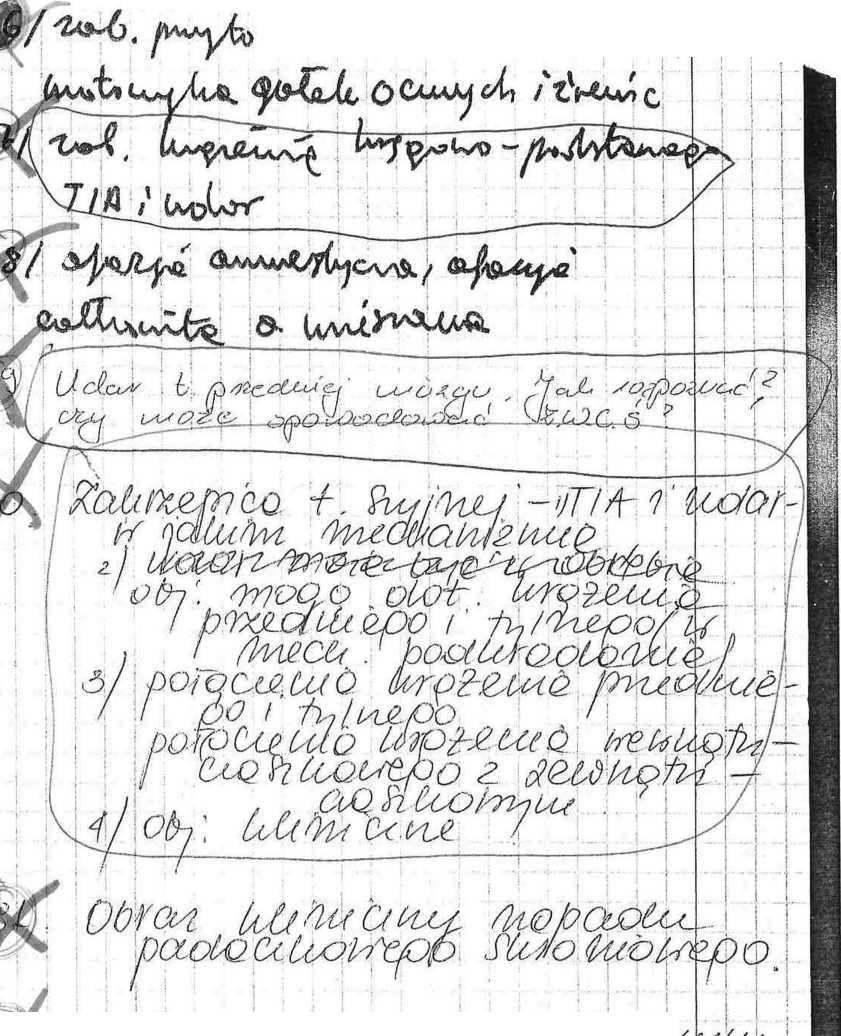 6/ zab. przyto
motoryka gałek ocznych i źrenic
7/ zab. krążenia kręgowo-podstawnego
TIA i udar
8/ afazja amnestyczna, afazja
całkowita a mieszana
9 Udar t. przedniej mózgu. Jak rozpoznać?
czy może spowodować ?
0 Zakrzepica t. szyjnej - TIA i udar-
w jakim mechanizmie
2/ udar może być w obrębie
obj. mogą dot. krążenia
przedniego i tylnego (w
mech. podkradania)
3/ połączenia krążenia przednie-
go i tylnego
połączenia krążenia wewnątrz-
czaszkowego z zewnątrz-
czaszkowym
4/ obj. kliniczne
Obraz kliniczny napadu
padaczkowego skroniowego.